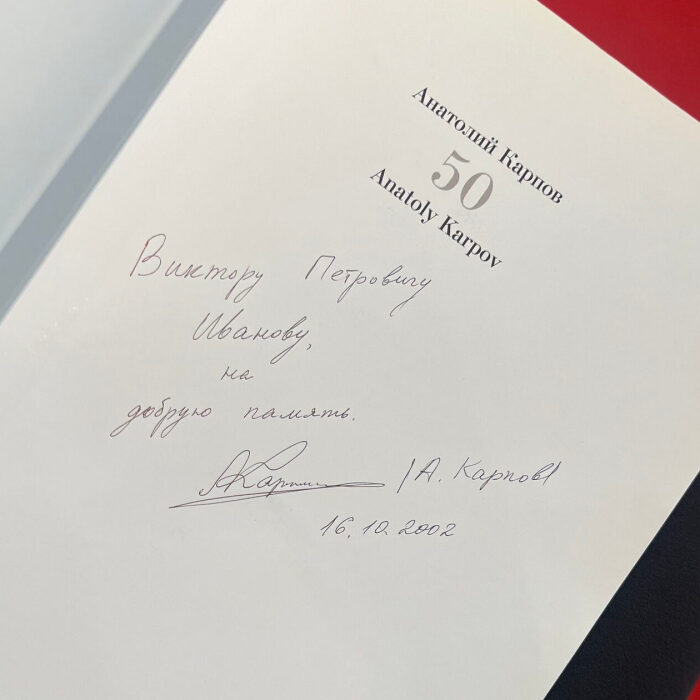 Анатолий Карпов
50
Anatoly Karpov
Виктору Петровичу
Иванову,
на
добрую память.
АКарпов /А. Карпов/
16.10.2002